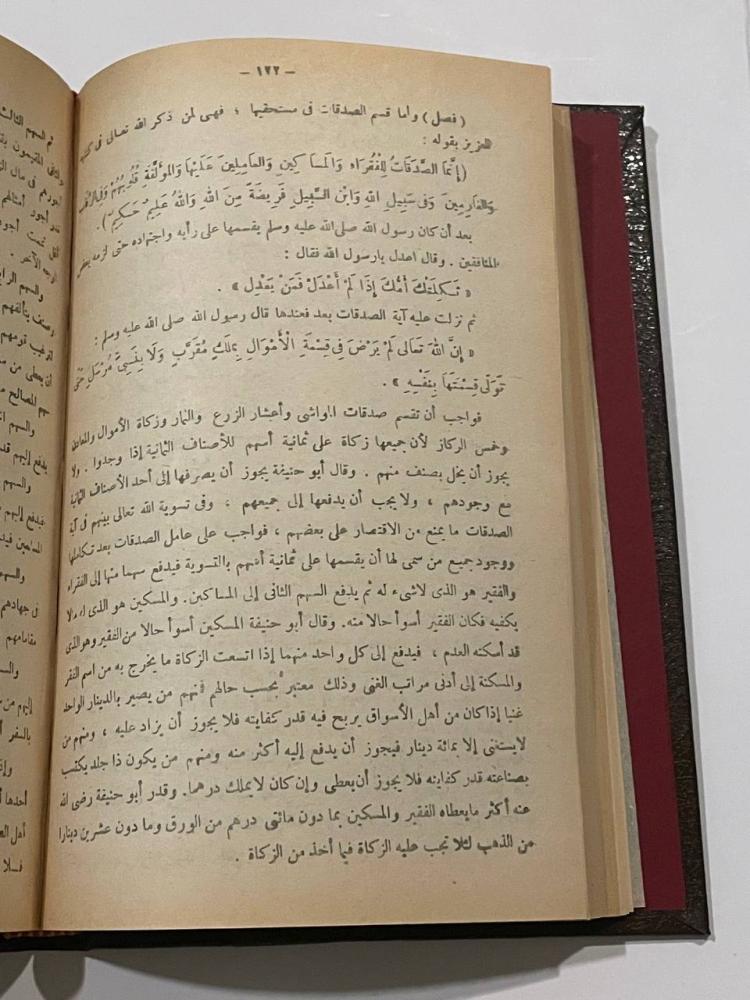 - ١٢٢ -
( فصل ) وأما قسم الصدقات فى مستحقيها ؛ فهى لمن ذكر الله تعالى فى كتابه
العزيز بقوله :
( إِنَّمَا الصَّدَقَاتُ لِلْفُقَرَاءِ وَالْمَسَاكِينِ وَالْعَامِلِينَ عَلَيْهَا وَالْمُؤَلَّفَةِ قُلُوبُهُمْ وَفِى الرِّقَابِ
وَالْغَارِمِينَ وَفِى سَبِيلِ اللهِ وَابْنِ السَّبِيلِ فَرِيضَةً مِنَ اللهِ وَاللهُ عَلِيمٌ حَكِيمٌ ) .
بعد أن كان رسول الله صلى الله عليه وسلم يقسمها على رأيه واجتهاده حتى لزمه بعض
المنافقين . وقال اعدل يارسول الله فقال :
« ثَكِلَتْكَ أُمُّكَ إِذَا لَمْ أَعْدِلْ فَمَنْ يَعْدِل » .
ثم نزلت عليه آية الصدقات بعد فعندها قال رسول الله صلى الله عليه وسلم :
« إِنَّ اللهَ تَعَالَى لَمْ يَرْضَ فِى قِسْمَةِ الْأَمْوَالِ بِمَلَكٍ مُقَرَّبٍ وَلَا بِنَبِىٍّ مُرْسَلٍ حَتَّى
تَوَلَّى قِسْمَتَهَا بِنَفْسِهِ » .
فواجب أن تقسم صدقات المواشى وأعشار الزرع والثمار وزكاة الأموال والمعادن
وخمس الركاز لأن جميعها زكاة على ثمانية أسهم للأصناف الثمانية إذا وجدوا . ولا
يجوز أن يخل بصنف منهم . وقال أبو حنيفة يجوز أن يصرفها إلى أحد الأصناف الثمانية
مع وجودهم ، ولا يجب أن يدفعها إلى جميعهم ؛ وفى تسوية الله تعالى بينهم فى آية
الصدقات ما يمنع من الاقتصار على بعضهم ، فواجب على عامل الصدقات بعد تكاملها
ووجود جميع من سمى لها أن يقسمها على ثمانية أسهم بالتسوية فيدفع سهما منها إلى الفقراء
والفقير هو الذى لاشىء له ثم يدفع السهم الثانى إلى المساكين . والمسكين هو الذى له مالا
يكفيه فكان الفقير أسوأ حالا منه . وقال أبو حنيفة المسكين أسوأ حالا من الفقير وهو الذى
قد أسكنه العدم ، فيدفع إلى كل واحد منهما إذا اتسعت الزكاة ما يخرج به من اسم الفقر
والمسكنة إلى أدنى مراتب الغنى وذلك معتبر بحسب حالهم فمنهم من يصير بالدينار الواحد
غنيا إذا كان من أهل الأسواق يربح فيه قدر كفايته فلا يجوز أن يزاد عليه ، ومنهم من
لايستغنى إلا بمائة دينار فيجوز أن يدفع إليه أكثر منه ومنهم من يكون ذا جلد يكتسب
بصناعته قدر كفايته فلا يجوز أن يعطى وإن كان لايملك درهما. وقدر أبو حنيفة رضى الله
عنه أكثر مايعطاه الفقير والمسكين بما دون مائتى درهم من الورق وما دون عشرين دينارا
من الذهب لئلا تجب عليه الزكاة فيما أخذ من الزكاة .